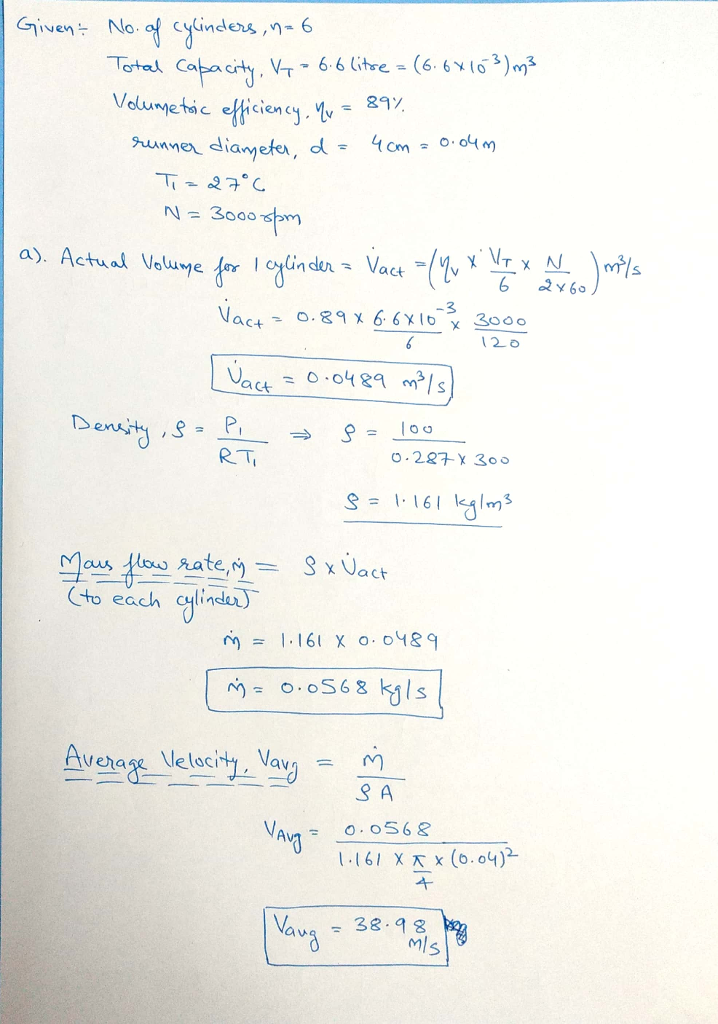 Given÷ No. of cylinders, n = 6
Total Capacity, V_T = 6.6 litre = (6.6 × 10^-3) m^3
Volumetric efficiency, η_v = 89%
runner diameter, d = 4cm = 0.04m
T_1 = 27°C
N = 3000 rpm
a). Actual Volume for 1 cylinder = V̇act = (η_v × V_T/6 × N/(2×60)) m^3/s
V̇act = 0.89 × 6.6×10^-3/6 × 3000/120
V̇act = 0.0489 m^3/s
Density, ρ = P_1/(RT_1) ⇒ ρ = 100/(0.287 × 300)
ρ = 1.161 kg/m^3
Mass flow rate, ṁ = ρ × V̇act
(to each cylinder)
ṁ = 1.161 × 0.0489
ṁ = 0.0568 kg/s
Average Velocity, Vavg = ṁ/(ρA)
VAvg = 0.0568/(1.161 × π/4 × (0.04)^2)
Vavg = 38.98 m/s